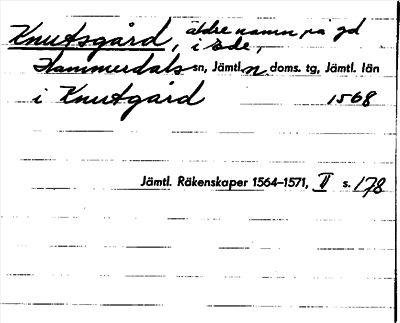 Knutsgård, äldre namn på gd
i Ede,
Hammerdals sn, Jämtl. n. doms. tg, Jämtl. län
i Knutgård 1568
Jämtl. Räkenskaper 1564–1571, II s. 178